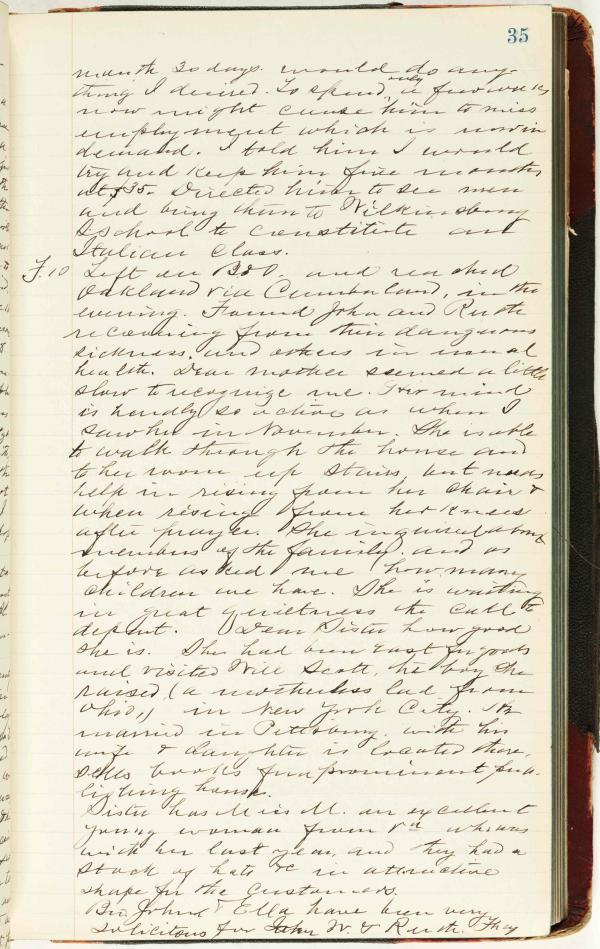 35
month 30 days. would do any
thing I desired. To spend only a few weeks
now might cause him to miss
employment which is now in
demand. I told him I would
try and keep him five months
at $35. Directed him to see men
and bring them to Wilkinsburg
School to constitute an
Italian Class.
F. 10 Left on B&O. and reached
Oakland via Cumberland, in the
evening. Found John and Ruth
recovering from their dangerous
sickness, and others in usual
health. Dear mother seemed a little
slow to recognize me. Her mind
is hardly so active as when I
saw her in November. She is able
to walk through the house and
to her room up stairs, but needs
help in rising from her chair &
when rising from her knees
after prayer. She inquired about
members of the family, and as
before asked me how many
children we have. She is waiting
in great quietness the call to
depart. Dear Sister how good
she is. She had been East for goods
and visited Will Scott, the boy she
raised, (a motherless lad from
Ohio,) in New York City. He
married in Pittsburg. with his
wife & daughter is located there,
sells books for a prominent pub-
lishing house.
Sister has Miss M. an excellent
young woman from Va who was
with her last year, and they had a
stock of hats &c in attractive
shape for the customers.
Bro. John & Ella have been very
solicitous for John W. & Ruth. They